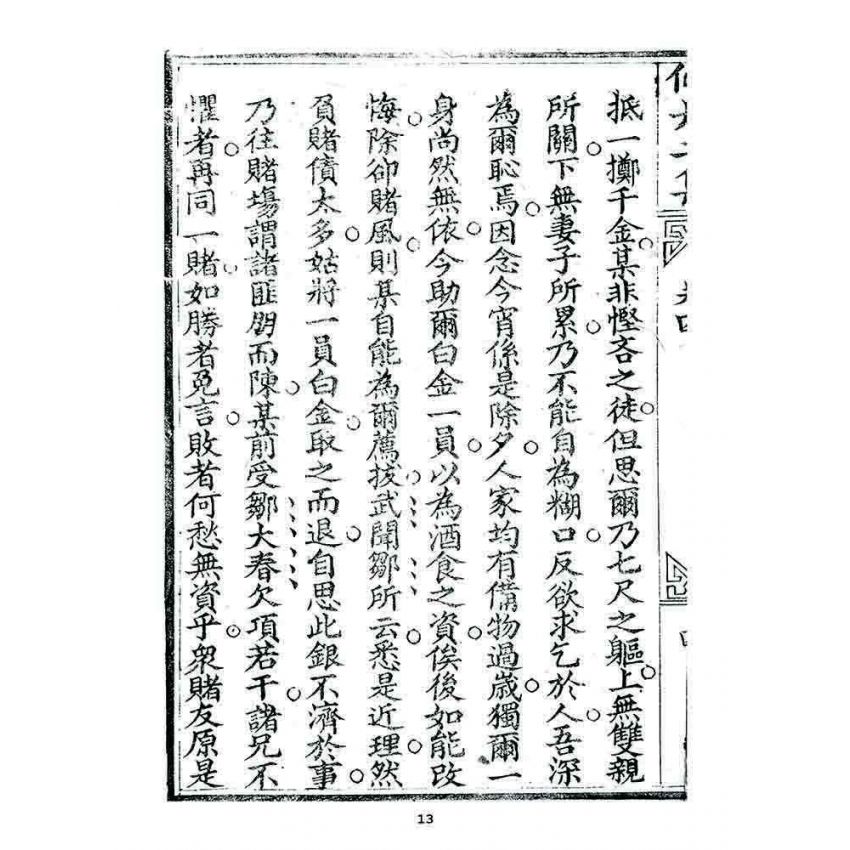 抵一擲千金某非慳吝之徒但思爾乃七尺之軀上無雙親
所關下無妻子所累乃不能自為糊口反欲求乞於人吾深
為爾恥焉因念今宵係是除夕人家均有備物過歲獨爾一
身尚然無依今助爾白金一員以為酒食之資俟後如能改
悔除卻賭風則某自能為爾薦拔武聞鄒所云悉是近理然
負賭債太多姑將一員白金取之而退自思此銀不濟於事
乃往賭場謂諸匪朋而陳某前受鄒大春欠項若干諸兄不
懼者再同一賭如勝者免言敗者何愁無資乎眾賭友原是
13